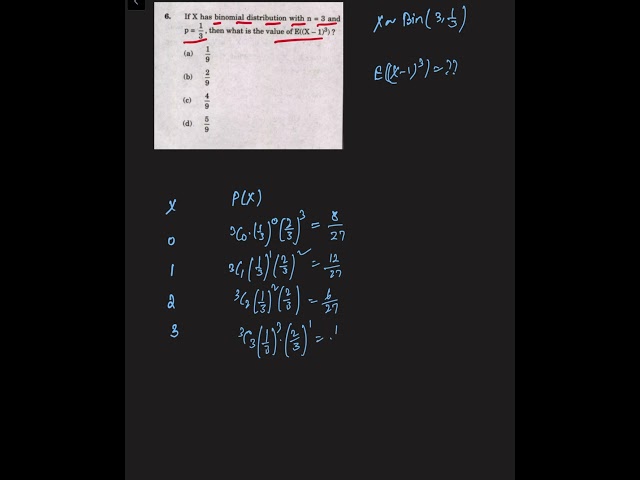 6. If X has binomial distribution with n = 3 and
p = 1/3, then what is the value of E((X − 1)³) ?
(a) 1/9
(b) 2/9
(c) 4/9
(d) 5/9
X ~ Bin(3, 1/3)
E((X-1)³) = ??
X P(X)
0 ³C₀·(1/3)⁰(2/3)³ = 8/27
1 ³C₁(1/3)¹(2/3)² = 12/27
2 ³C₂(1/3)²(2/3) = 6/27
3 ³C₃(1/3)³·(2/3)¹ = .1